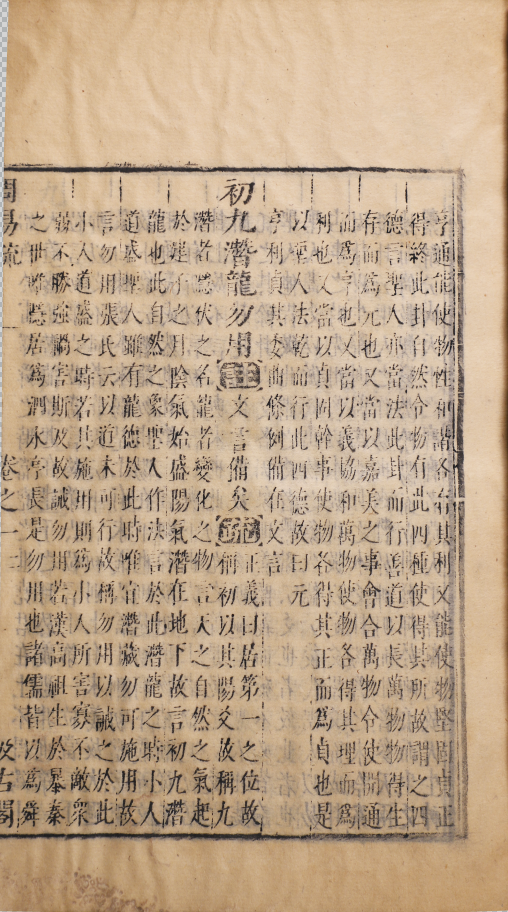 亨通能使物性和諧各有其利又能使物堅固貞正
得終此卦自然令物有此四種使得其所故謂之四
德言聖人亦當法此卦而行善道以長萬物物得生
存而爲元也又當以嘉美之事會合萬物令使開通
而爲亨也又當以義協和萬物使物各得其理而爲
利也又當以貞固幹事使物各得其正而爲貞也是
以聖人法乾而行此四德故曰元
亨利貞其委曲條例備在文言
初九潛龍勿用註文言備矣疏正義曰居第一之位故
稱初以其陽爻故稱九
潛者隱伏之名龍者變化之物言天之自然之氣起
於建子之月陰氣始盛陽氣潛在地下故言初九潛
龍也此自然之象聖人作法言於此潛龍之時小人
道盛聖人雖有龍德於此時唯宜潛藏勿可施用故
言勿用張氏云以道未可行故稱勿用以誡之於此
小人道盛之時若其施用則爲小人所害寡不敵衆
弱不勝强禍害斯及故誡勿用若漢高祖生於暴秦
之世唯隱居爲泗水亭長是勿用也諸儒皆以爲舜
周易疏 卷之一 二 汲古閣